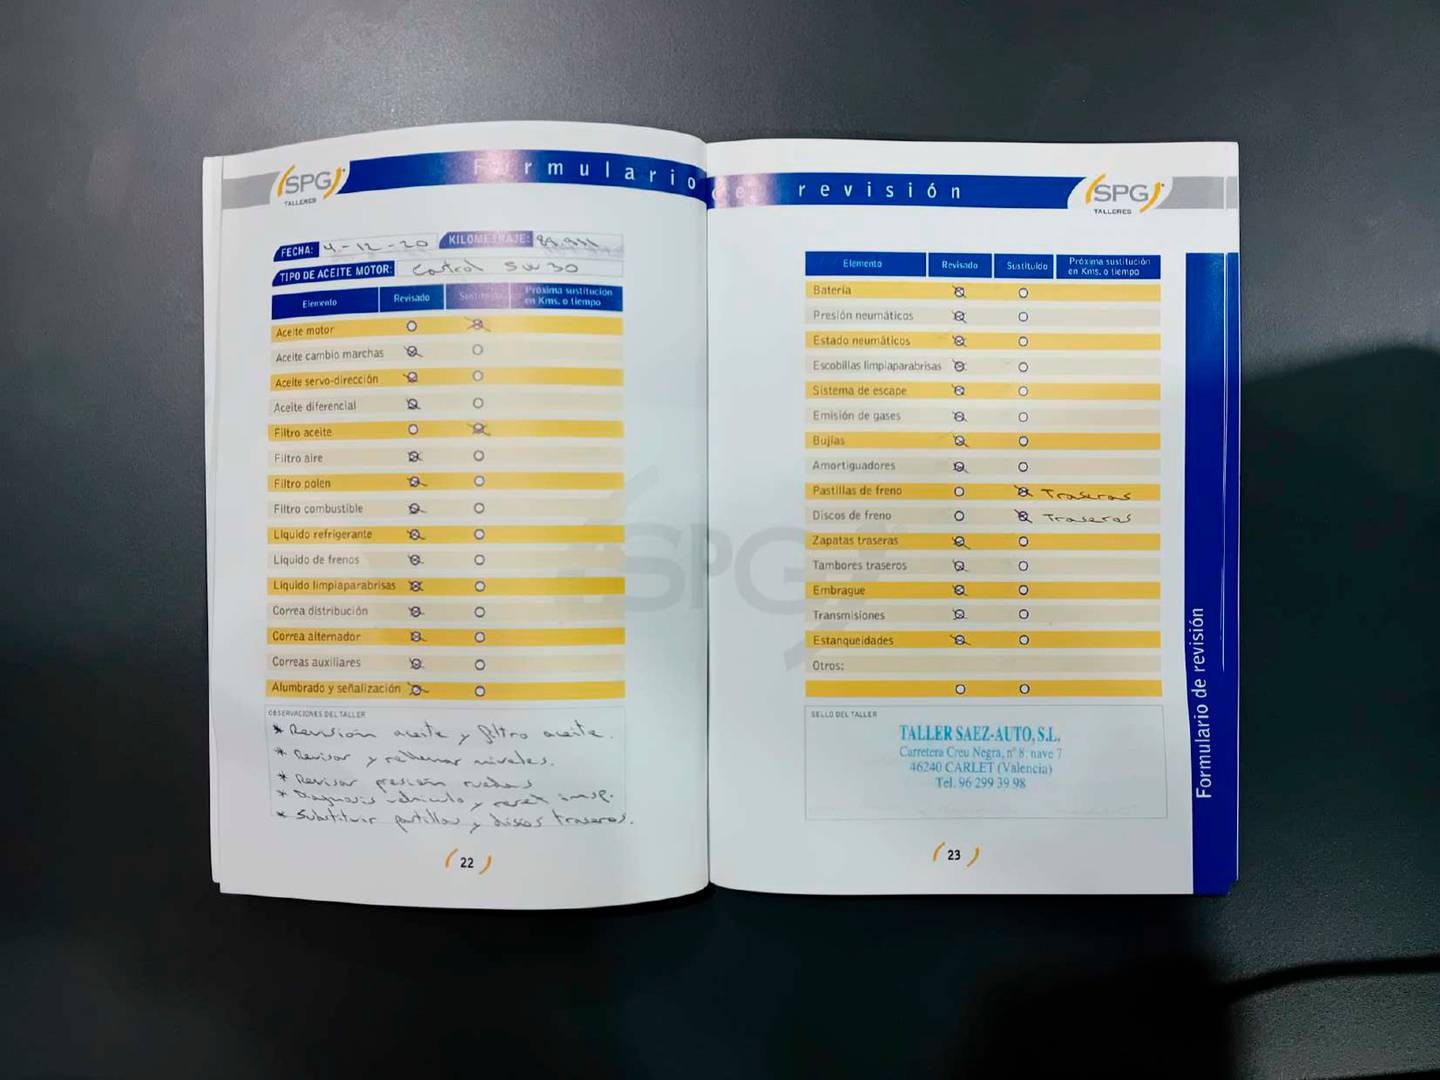 SPG
TALLERES
Formulario de revisión
SPG
TALLERES
FECHA: 4-12-20 KILOMETRAJE:
TIPO DE ACEITE MOTOR: Castrol 5W30
Elemento Revisado Sustituido Próxima sustitución en Kms. o tiempo
Aceite motor
Aceite cambio marchas
Aceite servo-dirección
Aceite diferencial
Filtro aceite
Filtro aire
Filtro polen
Filtro combustible
Líquido refrigerante
Líquido de frenos
Líquido limpiaparabrisas
Correa distribución
Correa alternador
Correas auxiliares
Alumbrado y señalización
OBSERVACIONES DEL TALLER
* Revisión aceite y filtro aceite.
* Revisar y rellenar niveles.
* Revisar presión ruedas
* Diagnosis vehiculo y reset insp.
* Substituir pastillas y discos traseros.
22
Elemento Revisado Sustituido Próxima sustitución en Kms. o tiempo
Batería
Presión neumáticos
Estado neumáticos
Escobillas limpiaparabrisas
Sistema de escape
Emisión de gases
Bujías
Amortiguadores
Pastillas de freno Traseras
Discos de freno Traseros
Zapatas traseras
Tambores traseros
Embrague
Transmisiones
Estanqueidades
Otros:
SELLO DEL TALLER
TALLER SAEZ-AUTO, S.L.
Carretera Creu Negra, nº 8, nave 7
46240 CARLET (Valencia)
Tel. 96 299 39 98
23
Formulario de revisión
SPG